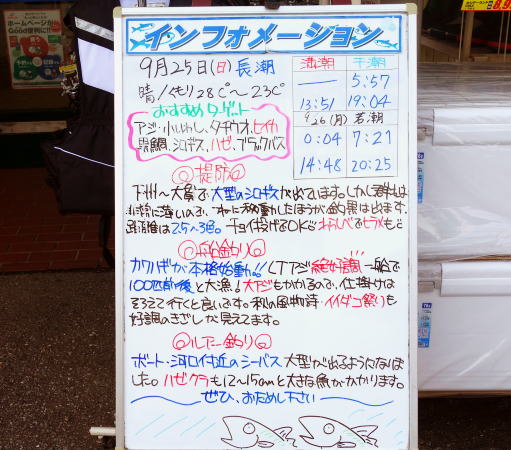 インフォメーション
9月25日(日)長潮
晴/くもり28℃〜23℃
満潮 干潮
— 5:57
13:51 19:04
9/26(月) 若潮
0:04 7:21
14:48 20:25
おすすめターゲット
アジ・小いわし、タチウオ、ヒイカ
黒鯛、シロギス、ハゼ、ブラックバス
◎堤防◎
大型のシロギスが出ています。しかし
移動したほうが釣果は出ます。
は2.5〜3色。チョイ投げもOKです。
◎船釣り◎
カワハギが本格始動!!LTアジ絶好調一船で
100匹前後と大漁!大アジもかかるので、仕掛けは
そろえて行くと良いです。秋の風物詩・イイダコ祭りも
好調のきざしが見えてます。
◎ルアー釣り◎
ボート・河口付近のシーバス大型が出るようになりま
した。ハゼクラも12〜15cmと大きな魚がかかります。
ぜひ、おためし下さい
ホームページが
Good便利に!!